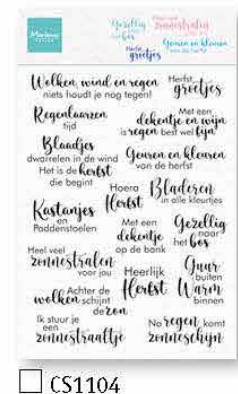 Marianne
Gezellig
naar
het bos
zonnestralen
Geuren en kleuren
van de herfst
Herfst
groetjes
Wolken, wind en regen
niets houdt je nog tegen!
Herfst
groetjes
Regenlaarzen
tijd
Met een
dekentje en wijn
is regen best wel fijn
Blaadjes
dwarrelen in de wind
Het is de herfst
die begint
Geuren en kleuren
van de herfst
Hoera
Herfst
Bladeren
in alle kleurtjes
Kastanjes
en
Paddenstoelen
Met een
dekentje
op de bank
Gezellig
naar
het bos
Heel veel
zonnestralen
voor jou
Heerlijk
Herfst
Guur
buiten
Warm
binnen
Achter de
wolken schijnt
de zon
Ik stuur je
een
zonnestraaltje
Na regen komt
zonneschijn
CS1104